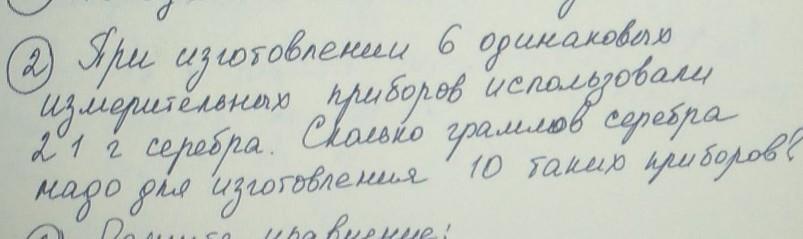 2 При изготовлении 6 одинаковых
измерительных приборов использовали
21 г серебра. Сколько граммов серебра
надо для изготовления 10 таких приборов?
Решите уравнение: